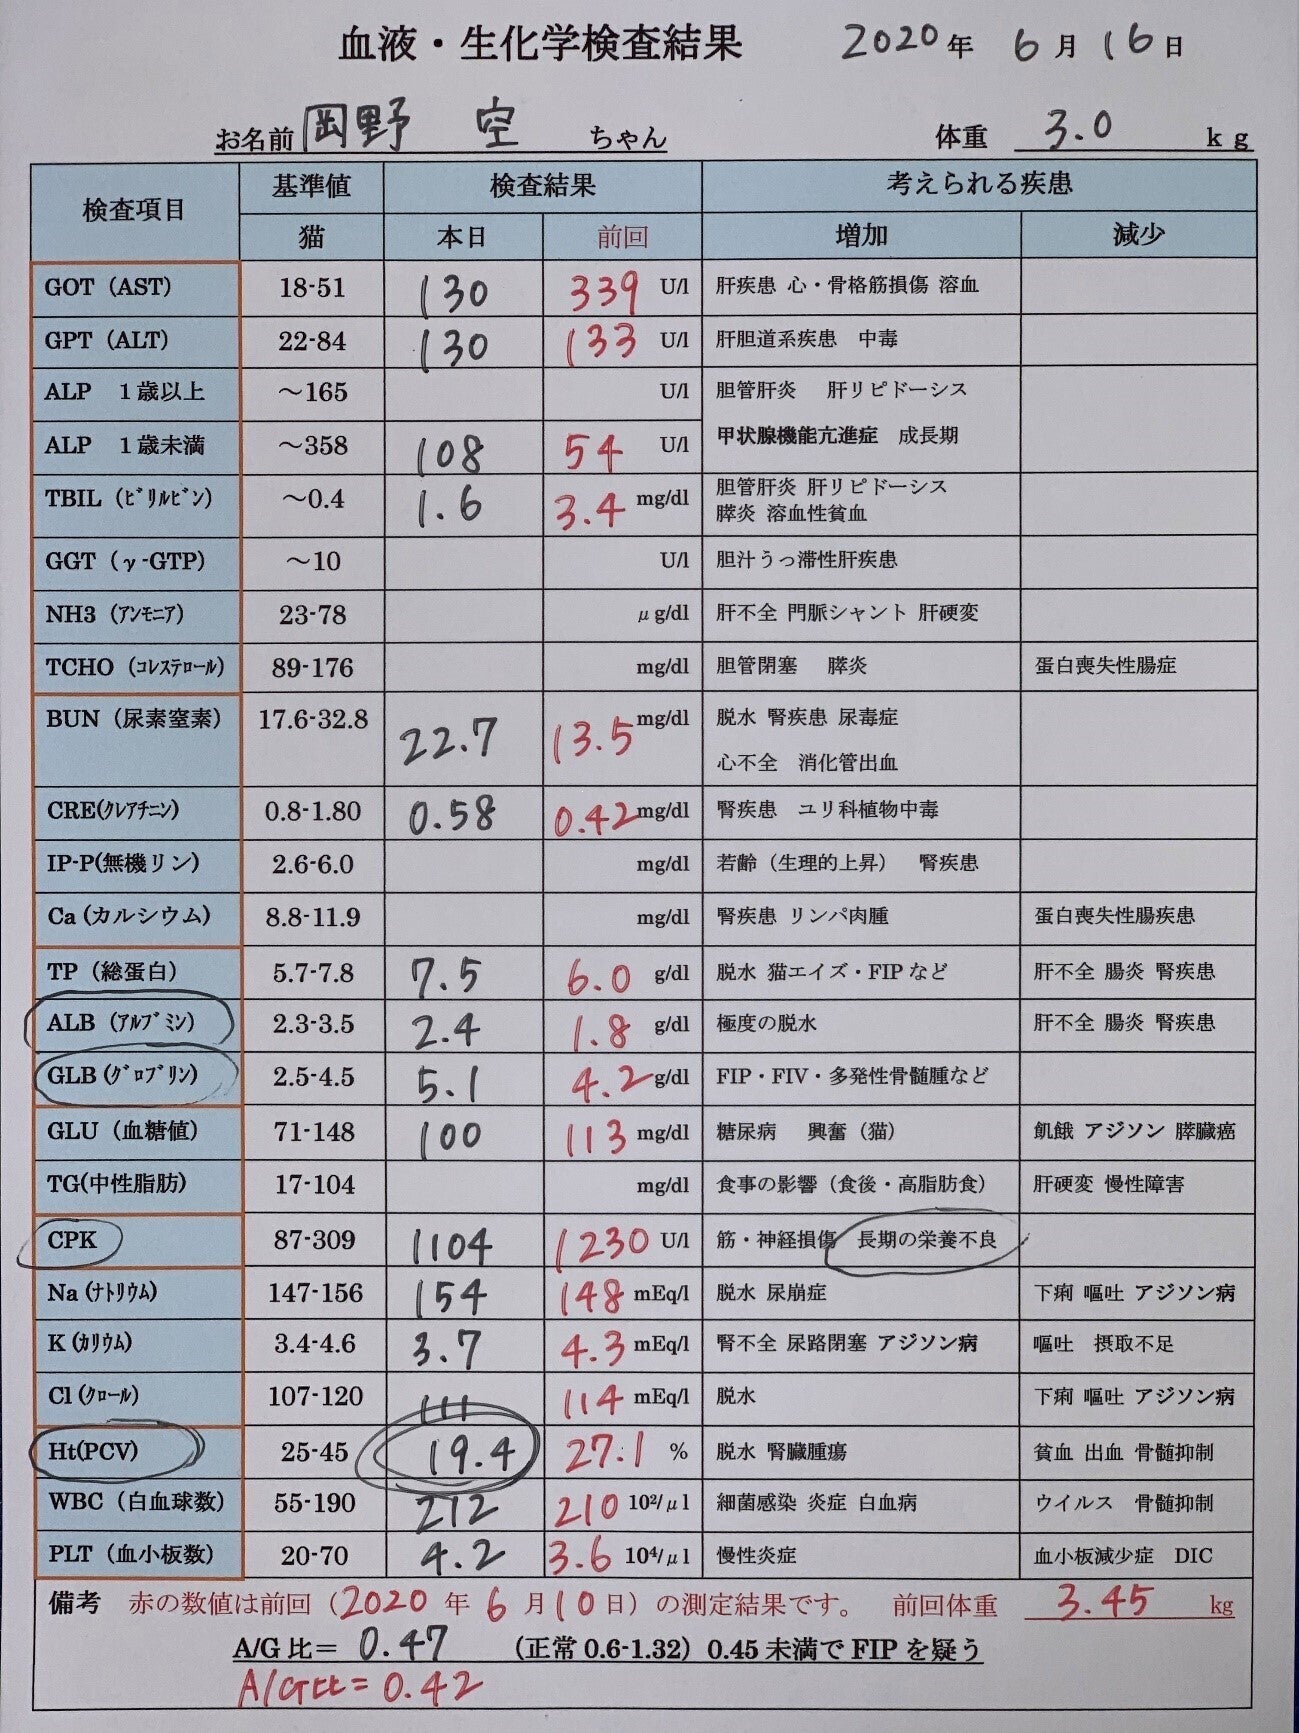 血液・生化学検査結果 2020年 6月 16日
お名前 岡野 空 ちゃん 体重 3.0 kg
検査項目 基準値 検査結果 考えられる疾患
猫 本日 前回 増加 減少
GOT (AST) 18-51 130 339 U/l 肝疾患 心・骨格筋損傷 溶血
GPT (ALT) 22-84 130 133 U/l 肝胆道系疾患 中毒
ALP 1歳以上 ～165 U/l 胆管肝炎 肝リピドーシス
ALP 1歳未満 ～358 108 54 U/l 甲状腺機能亢進症 成長期
TBIL (ﾋﾞﾘﾙﾋﾞﾝ) ～0.4 1.6 3.4 mg/dl 胆管肝炎 肝リピドーシス
膵炎 溶血性貧血
GGT (γ-GTP) ～10 U/l 胆汁うっ滞性肝疾患
NH3 (ｱﾝﾓﾆｱ) 23-78 μg/dl 肝不全 門脈シャント 肝硬変
TCHO (ｺﾚｽﾃﾛｰﾙ) 89-176 mg/dl 胆管閉塞 膵炎 蛋白喪失性腸症
BUN (尿素窒素) 17.6-32.8 22.7 13.5 mg/dl 脱水 腎疾患 尿毒症
心不全 消化管出血
CRE(ｸﾚｱﾁﾆﾝ) 0.8-1.80 0.58 0.42 mg/dl 腎疾患 ユリ科植物中毒
IP-P(無機リン) 2.6-6.0 mg/dl 若齢（生理的上昇） 腎疾患
Ca (カルシウム) 8.8-11.9 mg/dl 腎疾患 リンパ肉腫 蛋白喪失性腸疾患
TP (総蛋白) 5.7-7.8 7.5 6.0 g/dl 脱水 猫エイズ・FIPなど 肝不全 腸炎 腎疾患
ALB (ｱﾙﾌﾞﾐﾝ) 2.3-3.5 2.4 1.8 g/dl 極度の脱水 肝不全 腸炎 腎疾患
GLB (ｸﾞﾛﾌﾞﾘﾝ) 2.5-4.5 5.1 4.2 g/dl FIP・FIV・多発性骨髄腫など
GLU (血糖値) 71-148 100 113 mg/dl 糖尿病 興奮（猫） 飢餓 アジソン 膵臓癌
TG(中性脂肪) 17-104 mg/dl 食事の影響（食後・高脂肪食） 肝硬変 慢性障害
CPK 87-309 1104 1230 U/l 筋・神経損傷 長期の栄養不良
Na (ﾅﾄﾘｳﾑ) 147-156 154 148 mEq/l 脱水 尿崩症 下痢 嘔吐 アジソン病
K (ｶﾘｳﾑ) 3.4-4.6 3.7 4.3 mEq/l 腎不全 尿路閉塞 アジソン病 嘔吐 摂取不足
Cl (ｸﾛｰﾙ) 107-120 111 114 mEq/l 脱水 下痢 嘔吐 アジソン病
Ht(PCV) 25-45 19.4 27.1 % 脱水 腎臓腫瘍 貧血 出血 骨髄抑制
WBC (白血球数) 55-190 212 210 10²/μl 細菌感染 炎症 白血病 ウイルス 骨髄抑制
PLT (血小板数) 20-70 4.2 3.6 10⁴/μl 慢性炎症 血小板減少症 DIC
備考 赤の数値は前回（2020年6月10日）の測定結果です。 前回体重 3.45 kg
A/G比＝ 0.47 （正常0.6-1.32）0.45未満でFIPを疑う
A/G比＝0.42